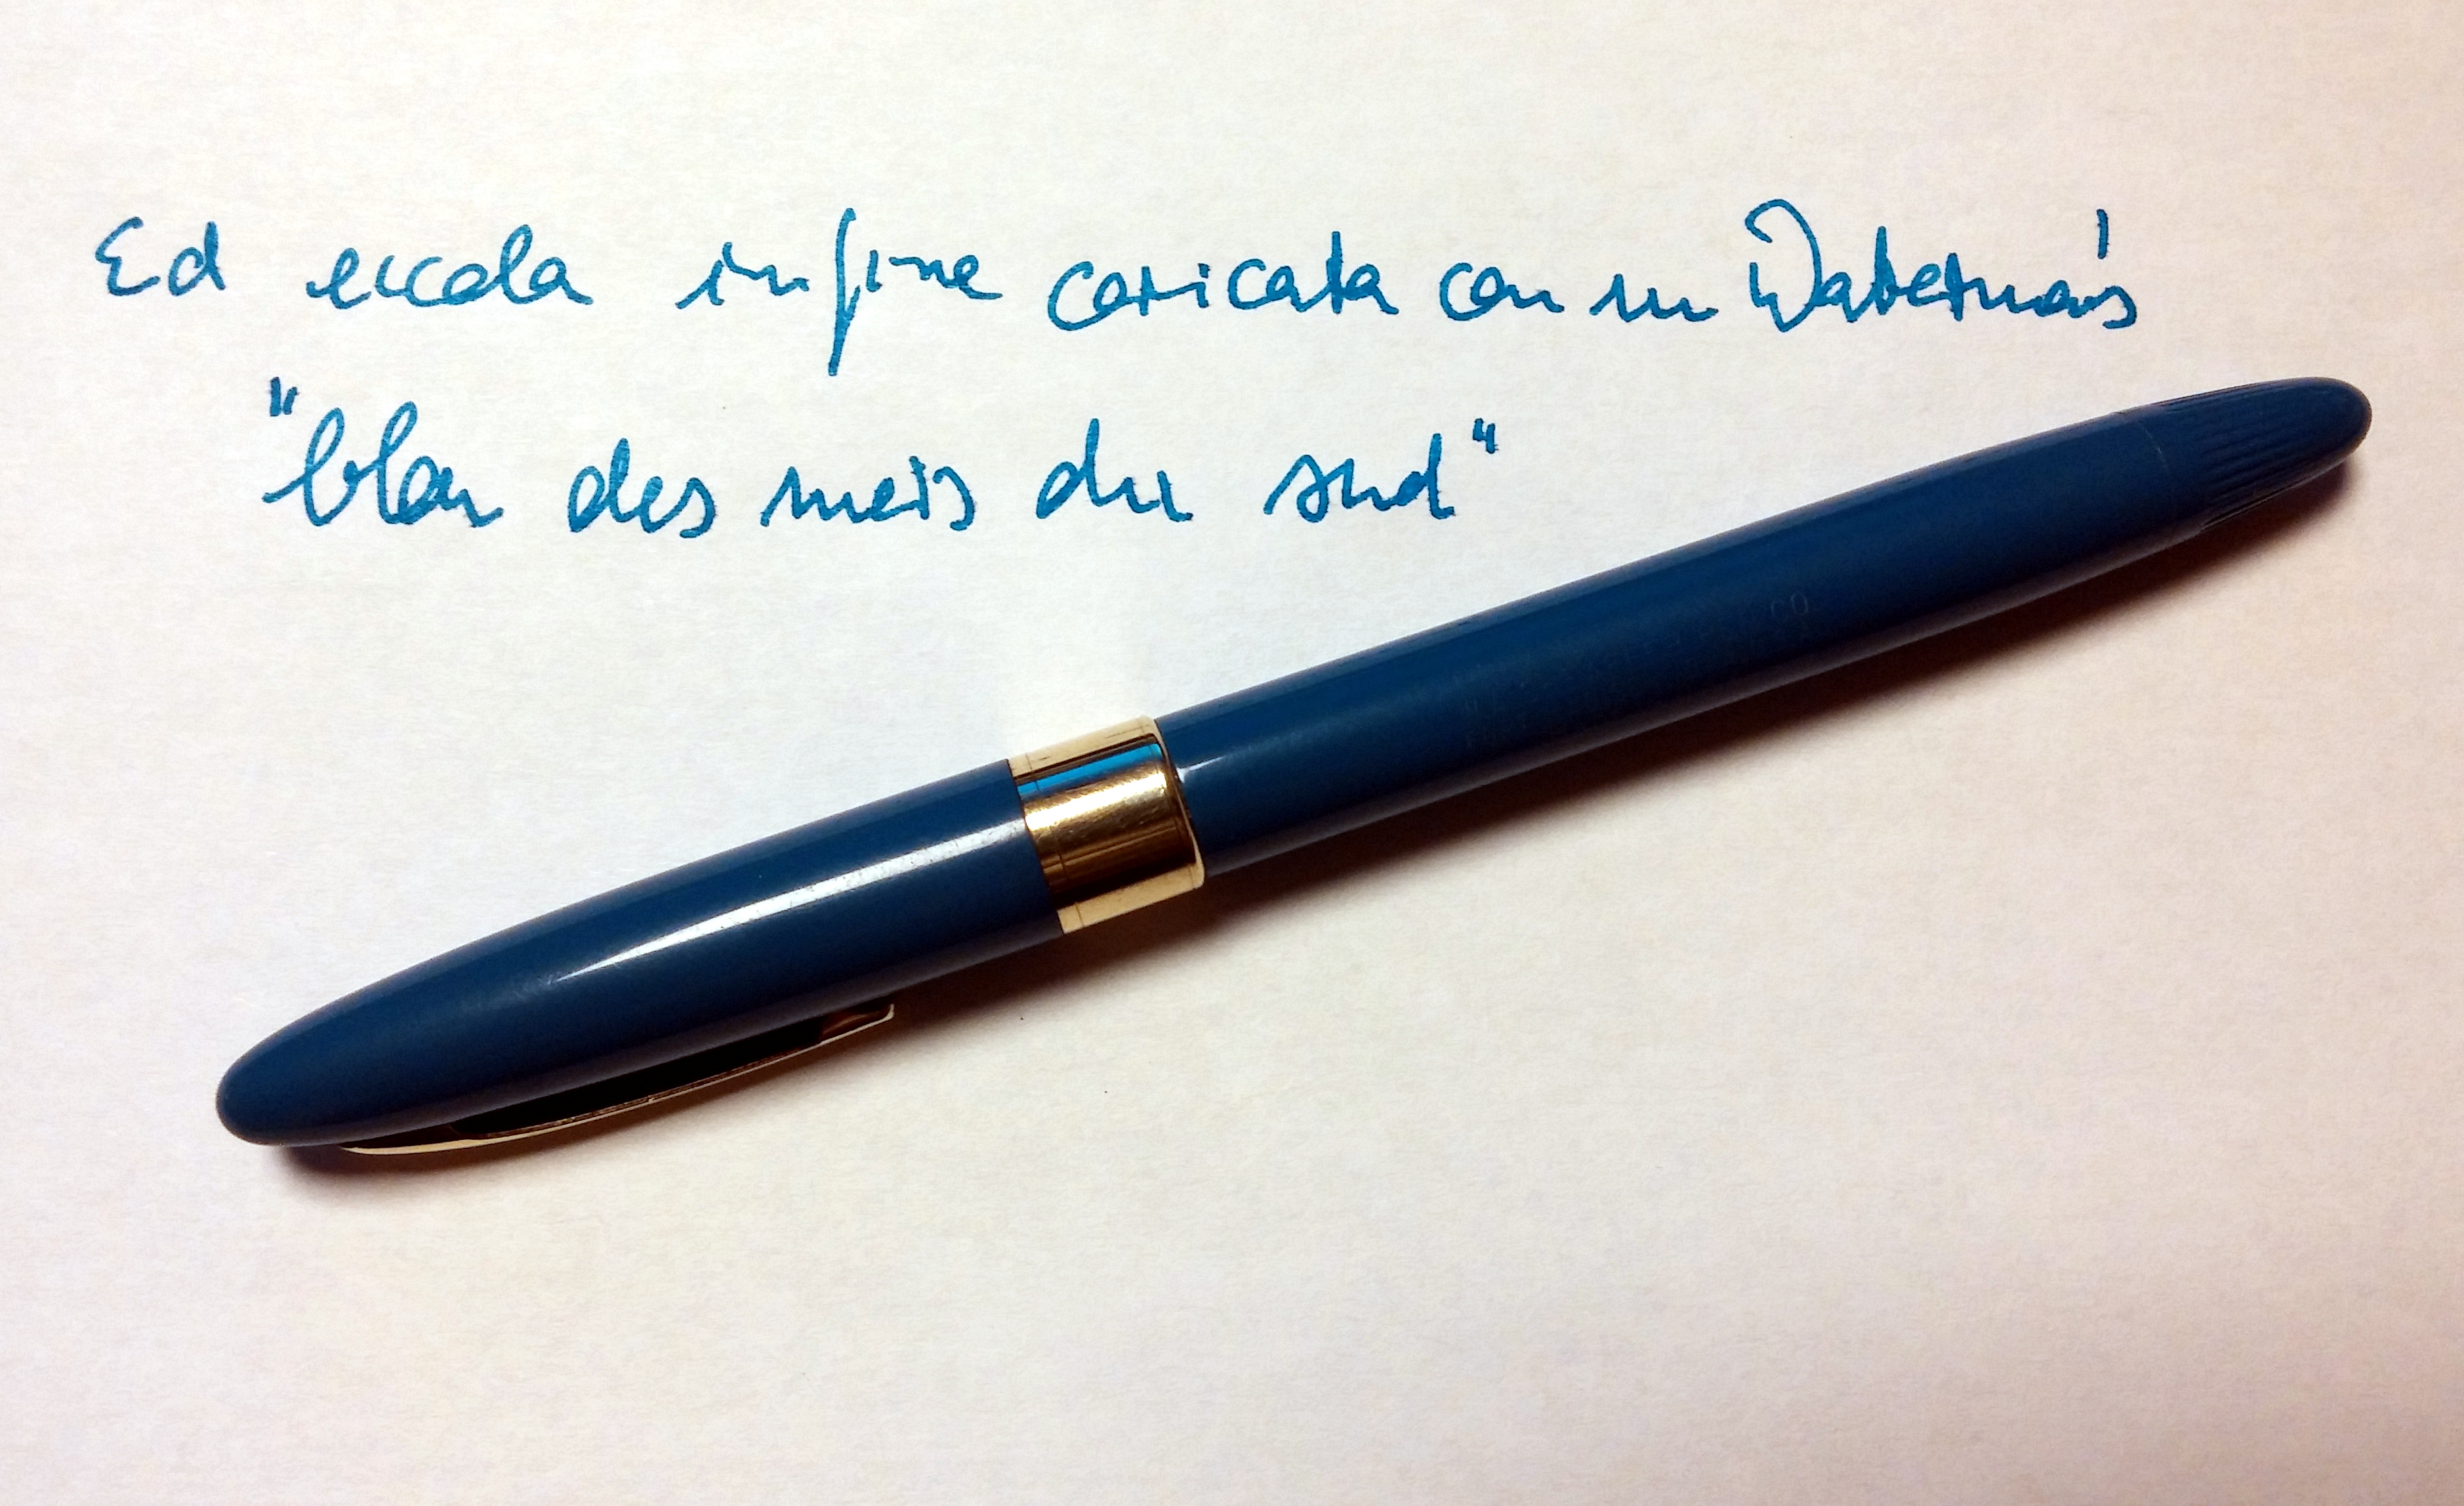 Ed eccola infine caricata con un Waterman's
"bleu des mers du sud"
CO.